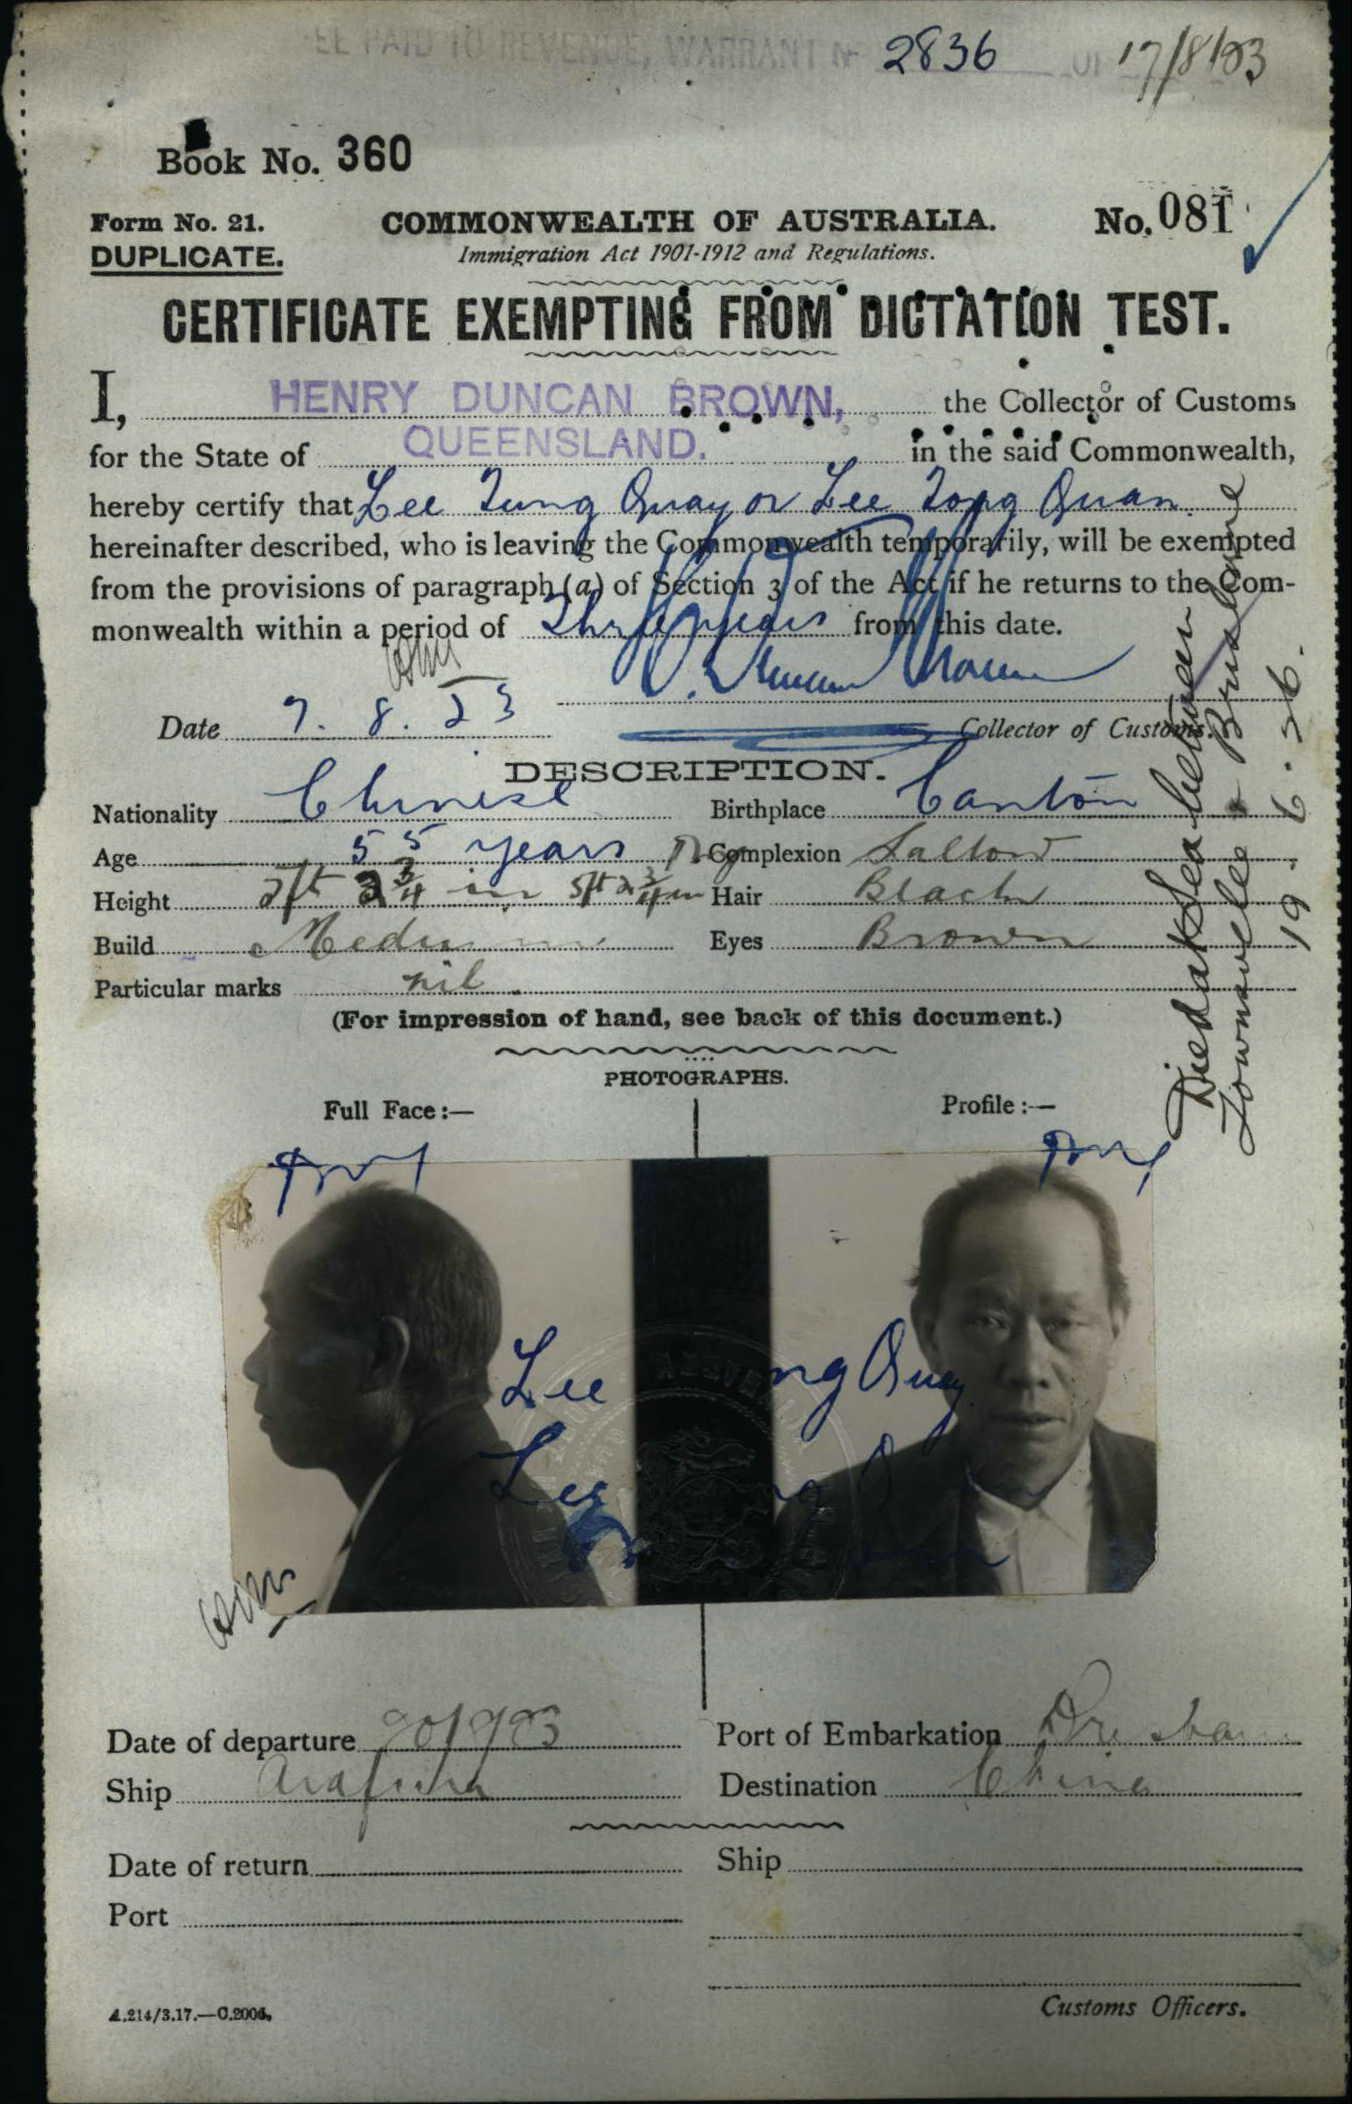 FEE PAID TO REVENUE, WARRANT No 2836 OF 17/8/23
Book No. 360
Form No. 21.
COMMONWEALTH OF AUSTRALIA.
No. 081
DUPLICATE.
Immigration Act 1901-1912 and Regulations.
CERTIFICATE EXEMPTING FROM DICTATION TEST.
I, HENRY DUNCAN BROWN, the Collector of Customs
for the State of QUEENSLAND. in the said Commonwealth,
hereby certify that Lee Tung Quay or Lee Tong Quan
hereinafter described, who is leaving the Commonwealth temporarily, will be exempted
from the provisions of paragraph (a) of Section 3 of the Act if he returns to the Com-
monwealth within a period of Three years from this date.
H. Duncan Brown
Date 7. 8. 23
Collector of Customs.
DESCRIPTION.
Nationality Chinese Birthplace Canton
Age 55 years Complexion Sallow
Height 5ft 2 3/4 in 5ft 2 3/4 in Hair Black
Build Medium Eyes Brown
Particular marks nil.
(For impression of hand, see back of this document.)
PHOTOGRAPHS.
Full Face:—
Profile:—
Lee ng Quay
Lee
Date of departure 20/9/23 Port of Embarkation Brisbane
Ship Arafura Destination China
Date of return Ship
Port
Customs Officers.
A.214/3.17.—C.2006.
Died at Sea between
Townsville & Brisbane
19.6.26.